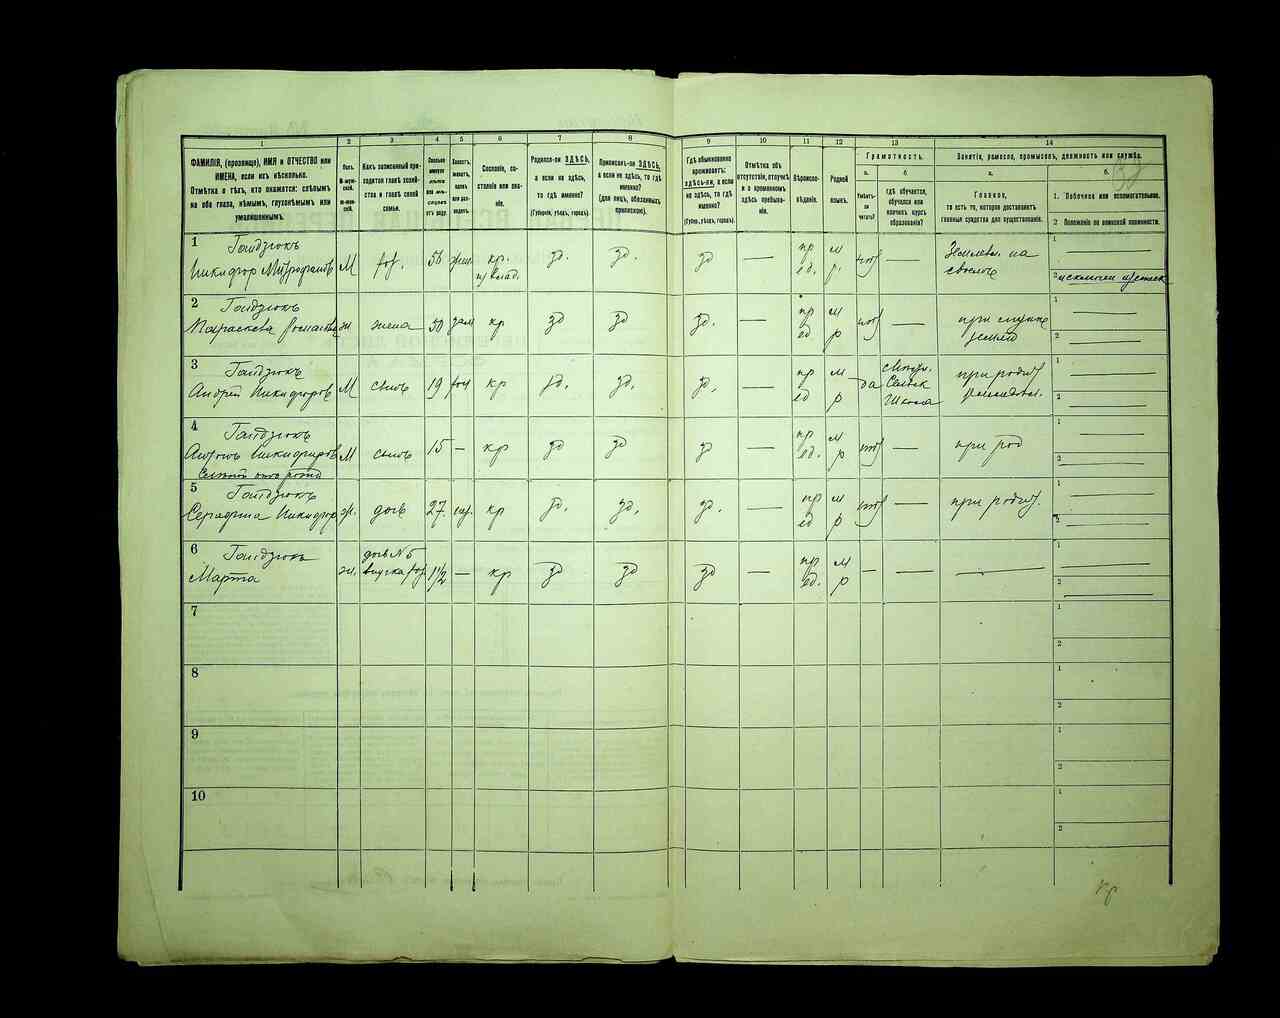 1
2
3
4
5
6
7
8
9
10
11
12
13
14
ФАМИЛІЯ, (прозвище), ИМЯ и ОТЧЕСТВО или
ИМЕНА, если ихъ нѣсколько.
Отмѣтка о тѣхъ, кто окажется: слѣпымъ
на оба глаза, нѣмымъ, глухонѣмымъ или
умалишеннымъ.
Полъ.
М-муж-
ской.
Ж-жен-
скій.
Какъ записанный при-
ходится главѣ хозяй-
ства и главѣ своей
семьи.
Сколько
минуло
лѣтъ
или мѣ-
сяцевъ
отъ роду.
Холостъ,
женатъ,
вдовъ
или раз-
веденъ.
Сословіе, со-
стояніе или зва-
ніе.
Родился-ли ЗДѢСЬ,
а если не здѣсь,
то гдѣ именно?
(Губернія, уѣздъ, городъ).
Приписанъ-ли ЗДѢСЬ,
а если не здѣсь, то гдѣ
именно?
(для лицъ, обязанныхъ
припискою).
Гдѣ обыкновенно
проживаетъ:
здѣсь-ли, а если
не здѣсь, то гдѣ
именно?
(Губер., уѣздъ, городъ).
Отмѣтка объ
отсутствіи, отлучкѣ
и о временномъ
здѣсь пребыва-
ніи.
Вѣроиспо-
вѣданіе.
Родной
языкъ.
Грамотность.
а.
Умѣетъ-
ли
читать?
б.
гдѣ обучается,
обучался или
кончилъ курсъ
образованія?
Занятіе, ремесло, промыселъ, должность или служба.
а.
Главное,
то есть то, которое доставляетъ
главныя средства для существованія.
б.
1. Побочное или вспомогательное.
2 Положеніе по воинской повинности.
1
Гайдзюкъ
Никифор Митрофанов
М
хоз.
56
жен.
кр.
из влад.
зд.
зд.
зд
—
пр
ед.
м
р.
нѣт
—
Землевл. на
своей
1
2
2
Гайдзюкъ
Параскева Романова
ж
жена
50
зам
кр
зд
зд
зд.
—
пр
ед
м
р
нѣт
—
при мужѣ
землед
1
2
3
Гайдзюкъ
Андрей Никифоров
М
сынъ
19
хол
кр
зд.
зд.
зд.
—
пр
ед
м
р
да
Сельск
Школа
при родит
1
2
4
Гайдзюкъ
Антонъ Никифоров
М
сынъ
15
—
кр
зд
зд
зд
—
пр
ед.
м
р
нѣт
—
при род
1
2
5
Гайдзюкъ
Серафима Никифор
ж.
дочь
27.
кр
зд.
зд.
зд.
—
пр
ед
м
р
нѣт
—
при родит.
1
2
6
Гайдзюкъ
Марта
ж.
дочь №5
внучка хоз.
1 1/2
—
кр
зд
зд
зд
—
пр
ед.
м
р
—
—
1
2
7
1
2
8
1
2
9
1
2
10
1
2
кр